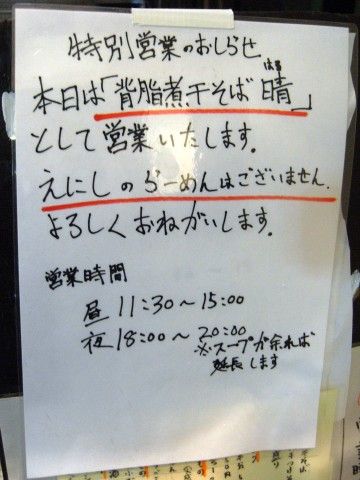 特別営業のおしらせ
はる
本日は「背脂煮干そば 晴」
として営業いたします。
えにしのらーめんはございません.
よろしくおねがいします。
営業時間
昼 11:30～15:00
夜 18:00～20:00
※スープが余れば
延長します